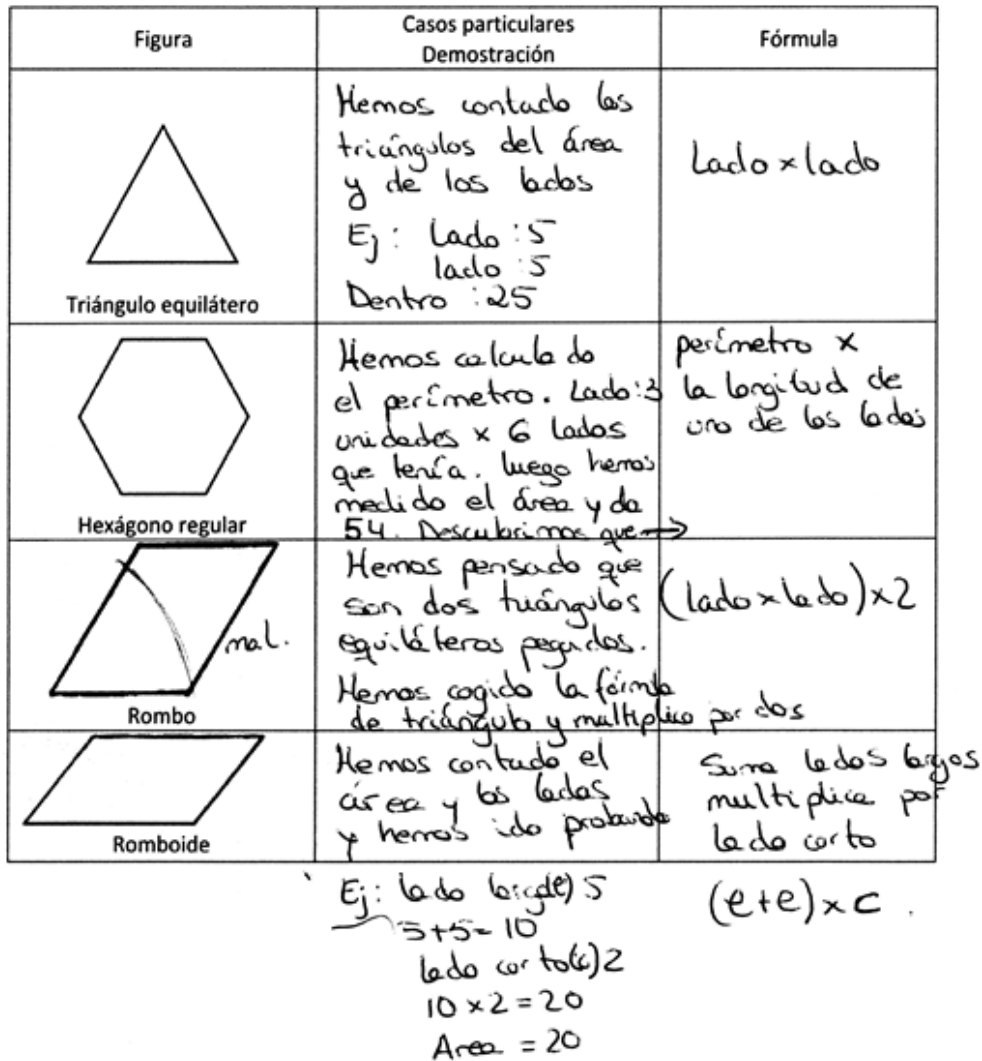 Figura
Casos particulares
Demostración
Fórmula
Hemos contado los
triángulos del área
y de los lados
Ej: Lado: 5
lado: 5
Dentro: 25
Lado × lado
Triángulo equilátero
Hemos calculado
el perímetro. Lado: 3
unidades × 6 lados
que tenía. luego hemos
medido el área y da
54. Descubrimos que →
perímetro ×
la longitud de
uno de los lados
Hexágono regular
mal.
Hemos pensado que
son dos triángulos
equiláteros pegados.
Hemos cogido la fórmula
de triángulo y multiplico por dos
(lado × lado) × 2
Rombo
Hemos contado el
área y los lados
y hemos ido probando
Suma lados largos
multiplica por
lado corto
Romboide
Ej: lado largo(e) 5
5+5= 10
lado corto(c) 2
10 × 2 = 20
Area = 20
(e+e) × c.